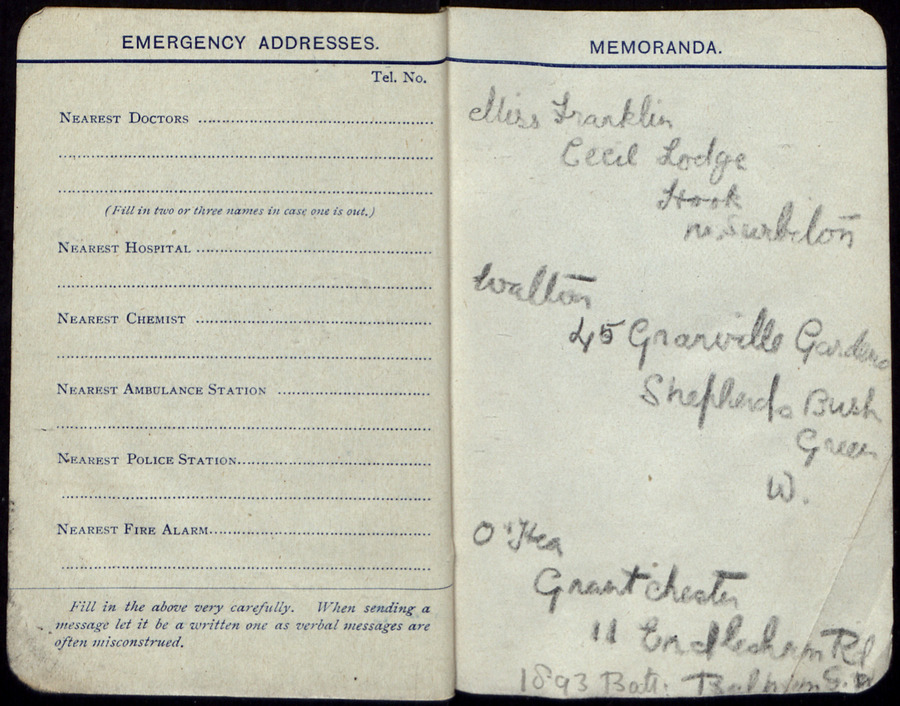 EMERGENCY ADDRESSES.
Tel. No.
NEAREST DOCTORS
(Fill in two or three names in case one is out.)
NEAREST HOSPITAL
NEAREST CHEMIST
NEAREST AMBULANCE STATION
NEAREST POLICE STATION
NEAREST FIRE ALARM
Fill in the above very carefully. When sending a
message let it be a written one as verbal messages are
often misconstrued.
MEMORANDA.
Miss Franklin
Cecil Lodge
Hook
nr. Surbiton
Walton
45 Granville Gardens
Shepherds Bush
Green
W.
O'Hea
Grantchester
11 Endlesham Rd
1893 Batt. Balham S.W